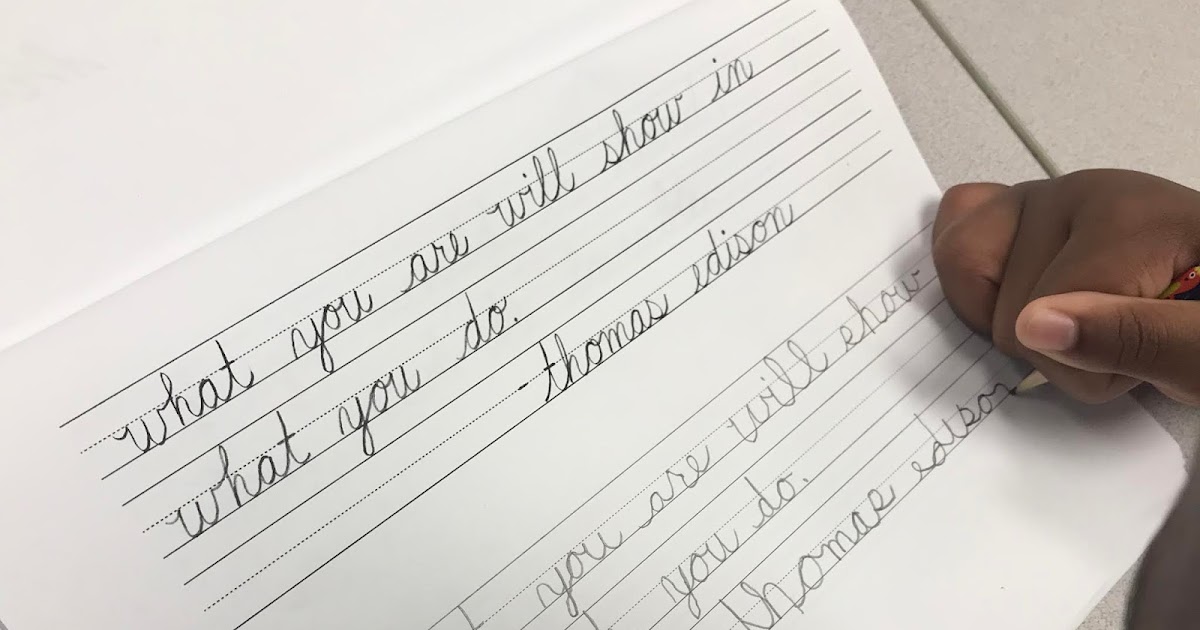 what you are will show in
what you do.
-thomas edison
you are will show
you do.
thomas edison